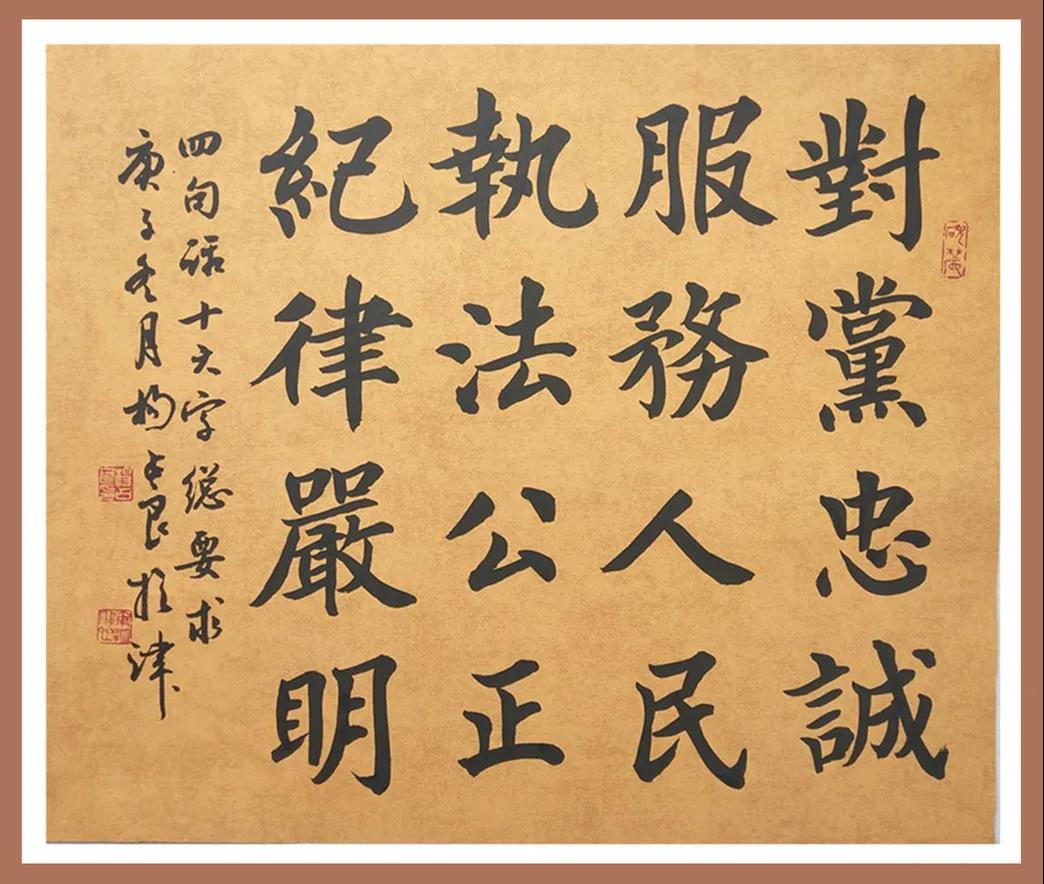 對黨忠誠
服務人民
執法公正
紀律嚴明
四句話十六字總要求
庚子冬月楊占良於津